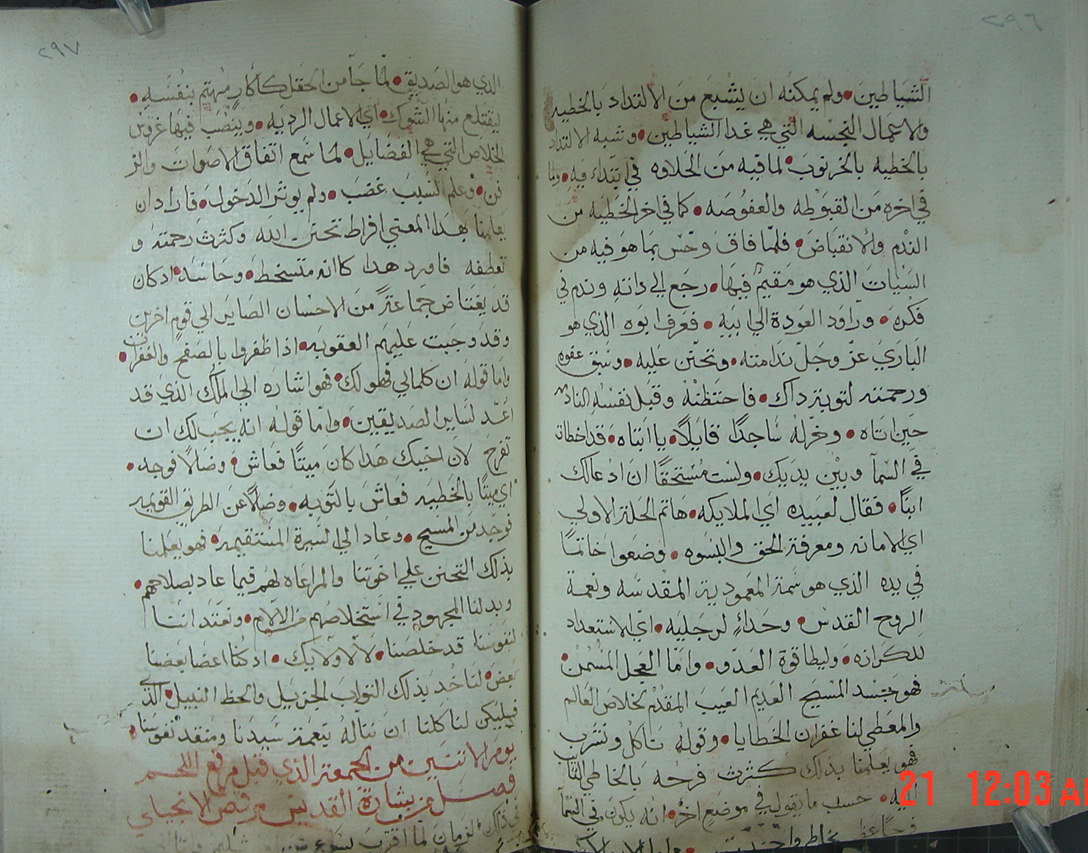 ٢٩٦
الشياطين ولم يمكنه ان يشبع من الالتداد بالخطيه
والاعمال النجسه التي هي غدا الشياطين وشبه الالتداد
بالخطيه بالخرنوب لما فيه من الحلاوه في ابتداء فيه وما
في اخره من القبوطه والعفوصه كما في اخر الخطيه من
الندم والانقباض فلما فاق وحس بما هو فيه من
السيات الذي هو مقيم فيها رجع الي داته وندم في
فكره وراود العودة الي ابيه فعرف ابوه الذي هو
الباري عز وجل ندامته وتحنن عليه وسبق عفوه
ورحمته لتوبته داك فاحتظنه وقبل نفسه النادمه
حين اتاه وخر له ساجدا قايلا يا ابتاه قد اخطات
في السما وبين يديك ولست مستحقا ان ادعا لك
ابنا فقال لعبيده اي الملايكه هاتم الحلة الاولي
اي الامانه ومعرفة الحق والبسوه وضعوا خاتما
في يده الذي هو سمة المعمودية المقدسه ونعمة
الروح القدس وحداء لرجليه اي الاستعداد
للكرازه وليطا قوة العدو واما العجل المسمن
فهو جسد المسيح العديم العيب المقدم لخلاص العالم
والمعطي لنا غفران الخطايا وقوله ناكل ونشرب
فهو يعلمنا بذلك كثرت فرحه بالخاطي التايب
اليه حسب ما يقول في موضع اخر انه يكون في السما
٢٩٧
الذي هو الصديق لما جا من الحقل كا كان مهتم بنفسه
ليقتلع منها الشوك اي الاعمال الرديه وينصب فيها غروس
الخلاص التي هي الفضايل لما سمع اتفاق الاصوات والز
فن وعلم السبب غضب ولم يوثر الدخول فاراد ان
يعلمنا بهدا المعني افراط تحنن الله وكثرت رحمته و
تعطفه فاورد هدا كانه متسخط وحاسد اد كان
قد يغتاض جماعة من الاحسان الصاير الي قوم اخرين
وقد وجبت عليهم العقوبه اذا ظفروا بالصفح والغفران
واما قوله ان كلمالي فهو لك فهو اشاره الي الملك الذي قد
اعد لساير الصديقين واما قوله انه يجب لك ان
تفرح لان اخيك هدا كان ميتا فعاش وضالا فوجد
اي ميتا بالخطيه فعاش بالتوبه وضالا عن الطريق القويمه
فوجد من المسيح وعاد الي السيرة المستقيمه فهو يعلمنا
بذلك التحنن علي اخوتنا والمراعاه لهم فيما عاد بصلاحهم
وبدلنا المجهود في استخلاصهم من الالام ونعتد اننا
لنفوسنا قد خلصنا لا لاولايك اد كنا اعضا بعضنا
بعض لناخد بذلك الثواب الجزيل والحظ النبيل الذي
فيليكن لنا كلنا ان نناله بنعمة سيدنا ومنقد نفوسنا
يوم الاتنين من الجمعة الذي قبل مرفع اللحم
فصل من بشارة القديس مرقص الانجيلي
في ذلك الزمان لما اقرب يسوع من
21 12:03 A